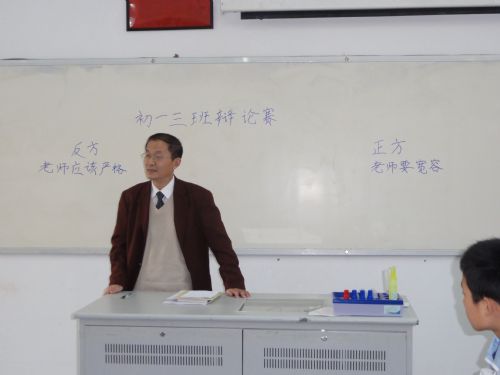 初一三班辩论赛
反方
老师应该严格
正方
老师要宽容